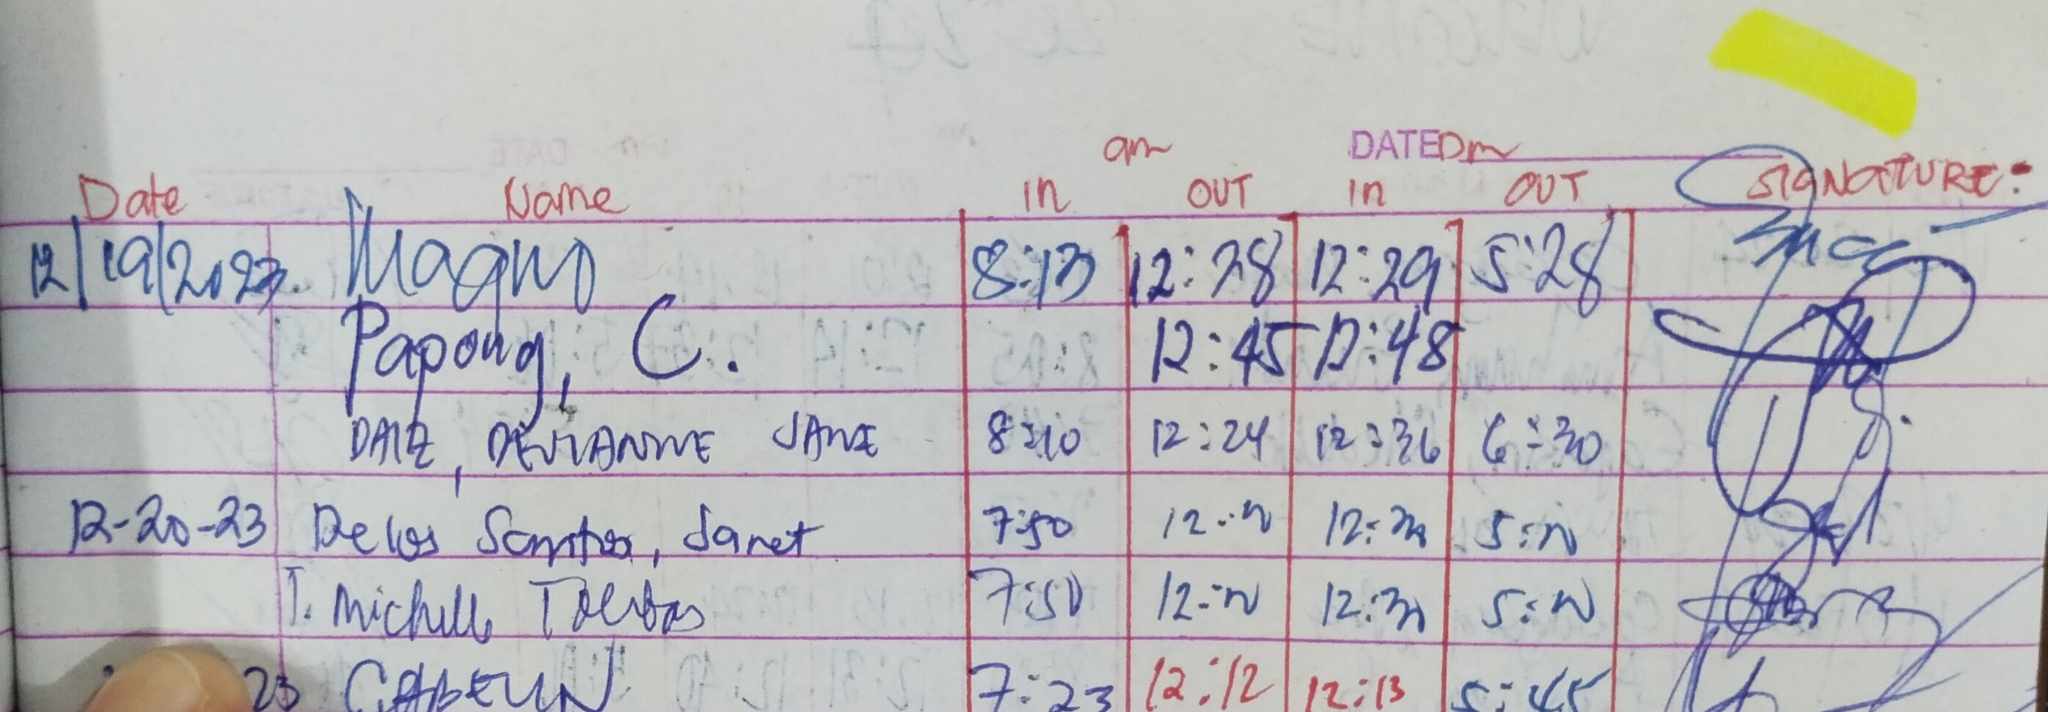 am DATE pm
Date Name in OUT in OUT SIGNATURE:
12/19/2023 Magno 8:13 12:28 12:29 5:28
Papong, C. 12:45 12:48
DALE, DEVIANNE JANE 8:10 12:24 12:36 6:30
12-20-23 Delos Santos, Janet 7:50 12: 12: 5:
J. Michelle 7:50 12: 12: 5:
23 7:23 12:12 12:13 5:45